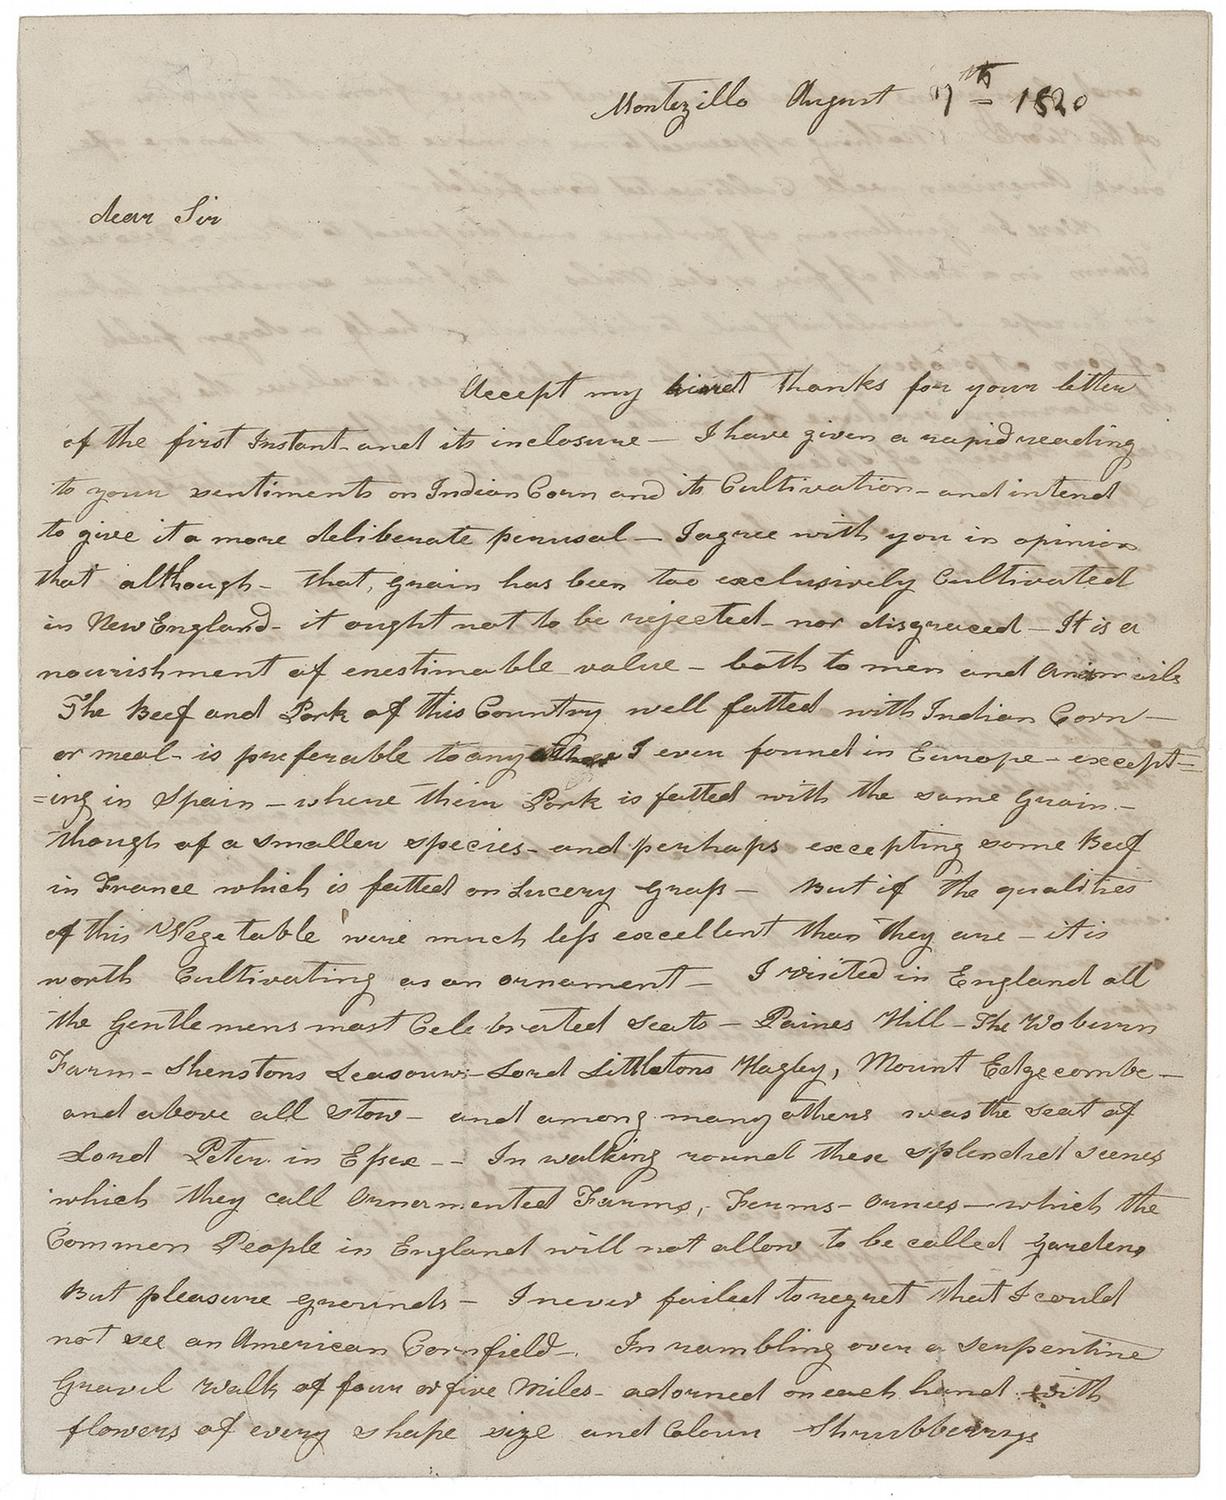 Montezillo August 7th 1820
dear Sir
Accept my kindest thanks for your letter
of the first Instant - and its inclosure — I have given a rapid reading
to your sentiments on Indian Corn and its Cultivation - and intend
to give it a more deliberate perusal — I agree with you in opinion
that although - that, grain has been too exclusively Cultivated
in New England - it ought not to be rejected - nor disgraced — It is a
nourishment of enestimable value - both to men and Animails
The Beef and Pork of this Country well fatted with Indian Corn —
or meal - is preferable to any other I ever found in Europe - except=
=ing in Spain — where their Pork is fatted with the same Grain. —
though of a smaller species - and perhaps excepting some Beef
in France which is fatted on Lucery Grass — But if the qualities
of this Vegetable were much less excellent than they are — it is
worth Cultivating as an ornament — I visited in England all
the Gentlemens most Celebrated seats — Paines Hill — The Woburn
Farm - Shenstons Leasows — Lord Littletons Hagley, Mount Edgecombe —
and above all Stow - and among many others was the seat of
Lord Peter in Essex -- In walking round these splendid scenes
which they call Ornamented Farms, Ferms - Ornees — which the
Common People in England will not allow to be called gardens
But pleasure grounds — I never failed to regret that I could
not see an American Cornfield - In rambling over a serpentine
Gravil walk of four or five Miles - adorned on each hand with
flowers of every shape size and Colour Shrubberrys